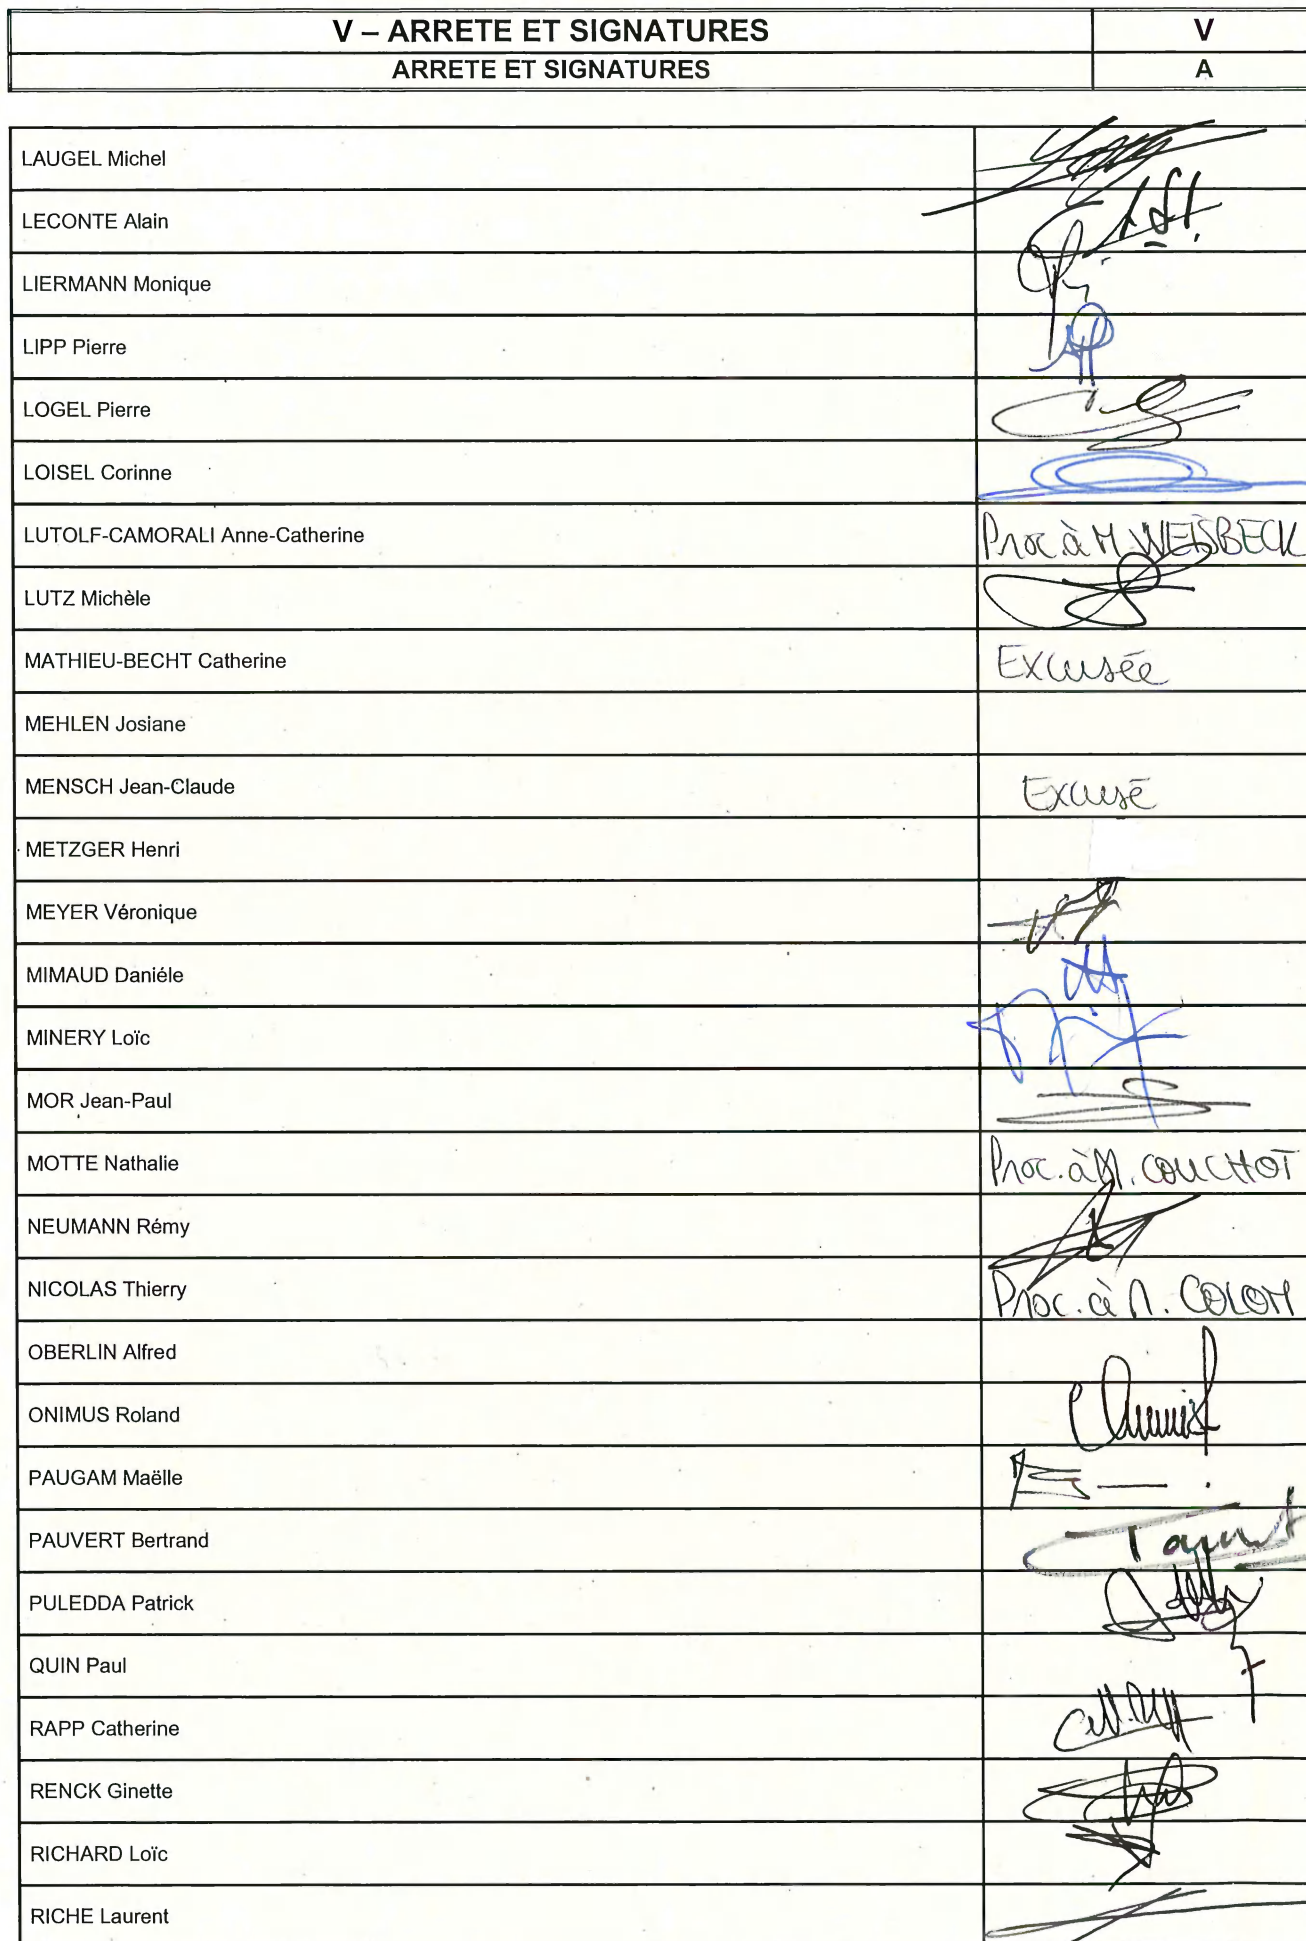 V – ARRETE ET SIGNATURES V
ARRETE ET SIGNATURES A
LAUGEL Michel
LECONTE Alain
LIERMANN Monique
LIPP Pierre
LOGEL Pierre
LOISEL Corinne
LUTOLF-CAMORALI Anne-Catherine Proc à M. WEISBECK
LUTZ Michèle
MATHIEU-BECHT Catherine Excusée
MEHLEN Josiane
MENSCH Jean-Claude Excusé
METZGER Henri
MEYER Véronique
MIMAUD Daniéle
MINERY Loïc
MOR Jean-Paul
MOTTE Nathalie Proc. à M. COUCHOT
NEUMANN Rémy
NICOLAS Thierry Proc. à M. COLOM
OBERLIN Alfred
ONIMUS Roland
PAUGAM Maëlle
PAUVERT Bertrand
PULEDDA Patrick
QUIN Paul
RAPP Catherine
RENCK Ginette
RICHARD Loïc
RICHE Laurent